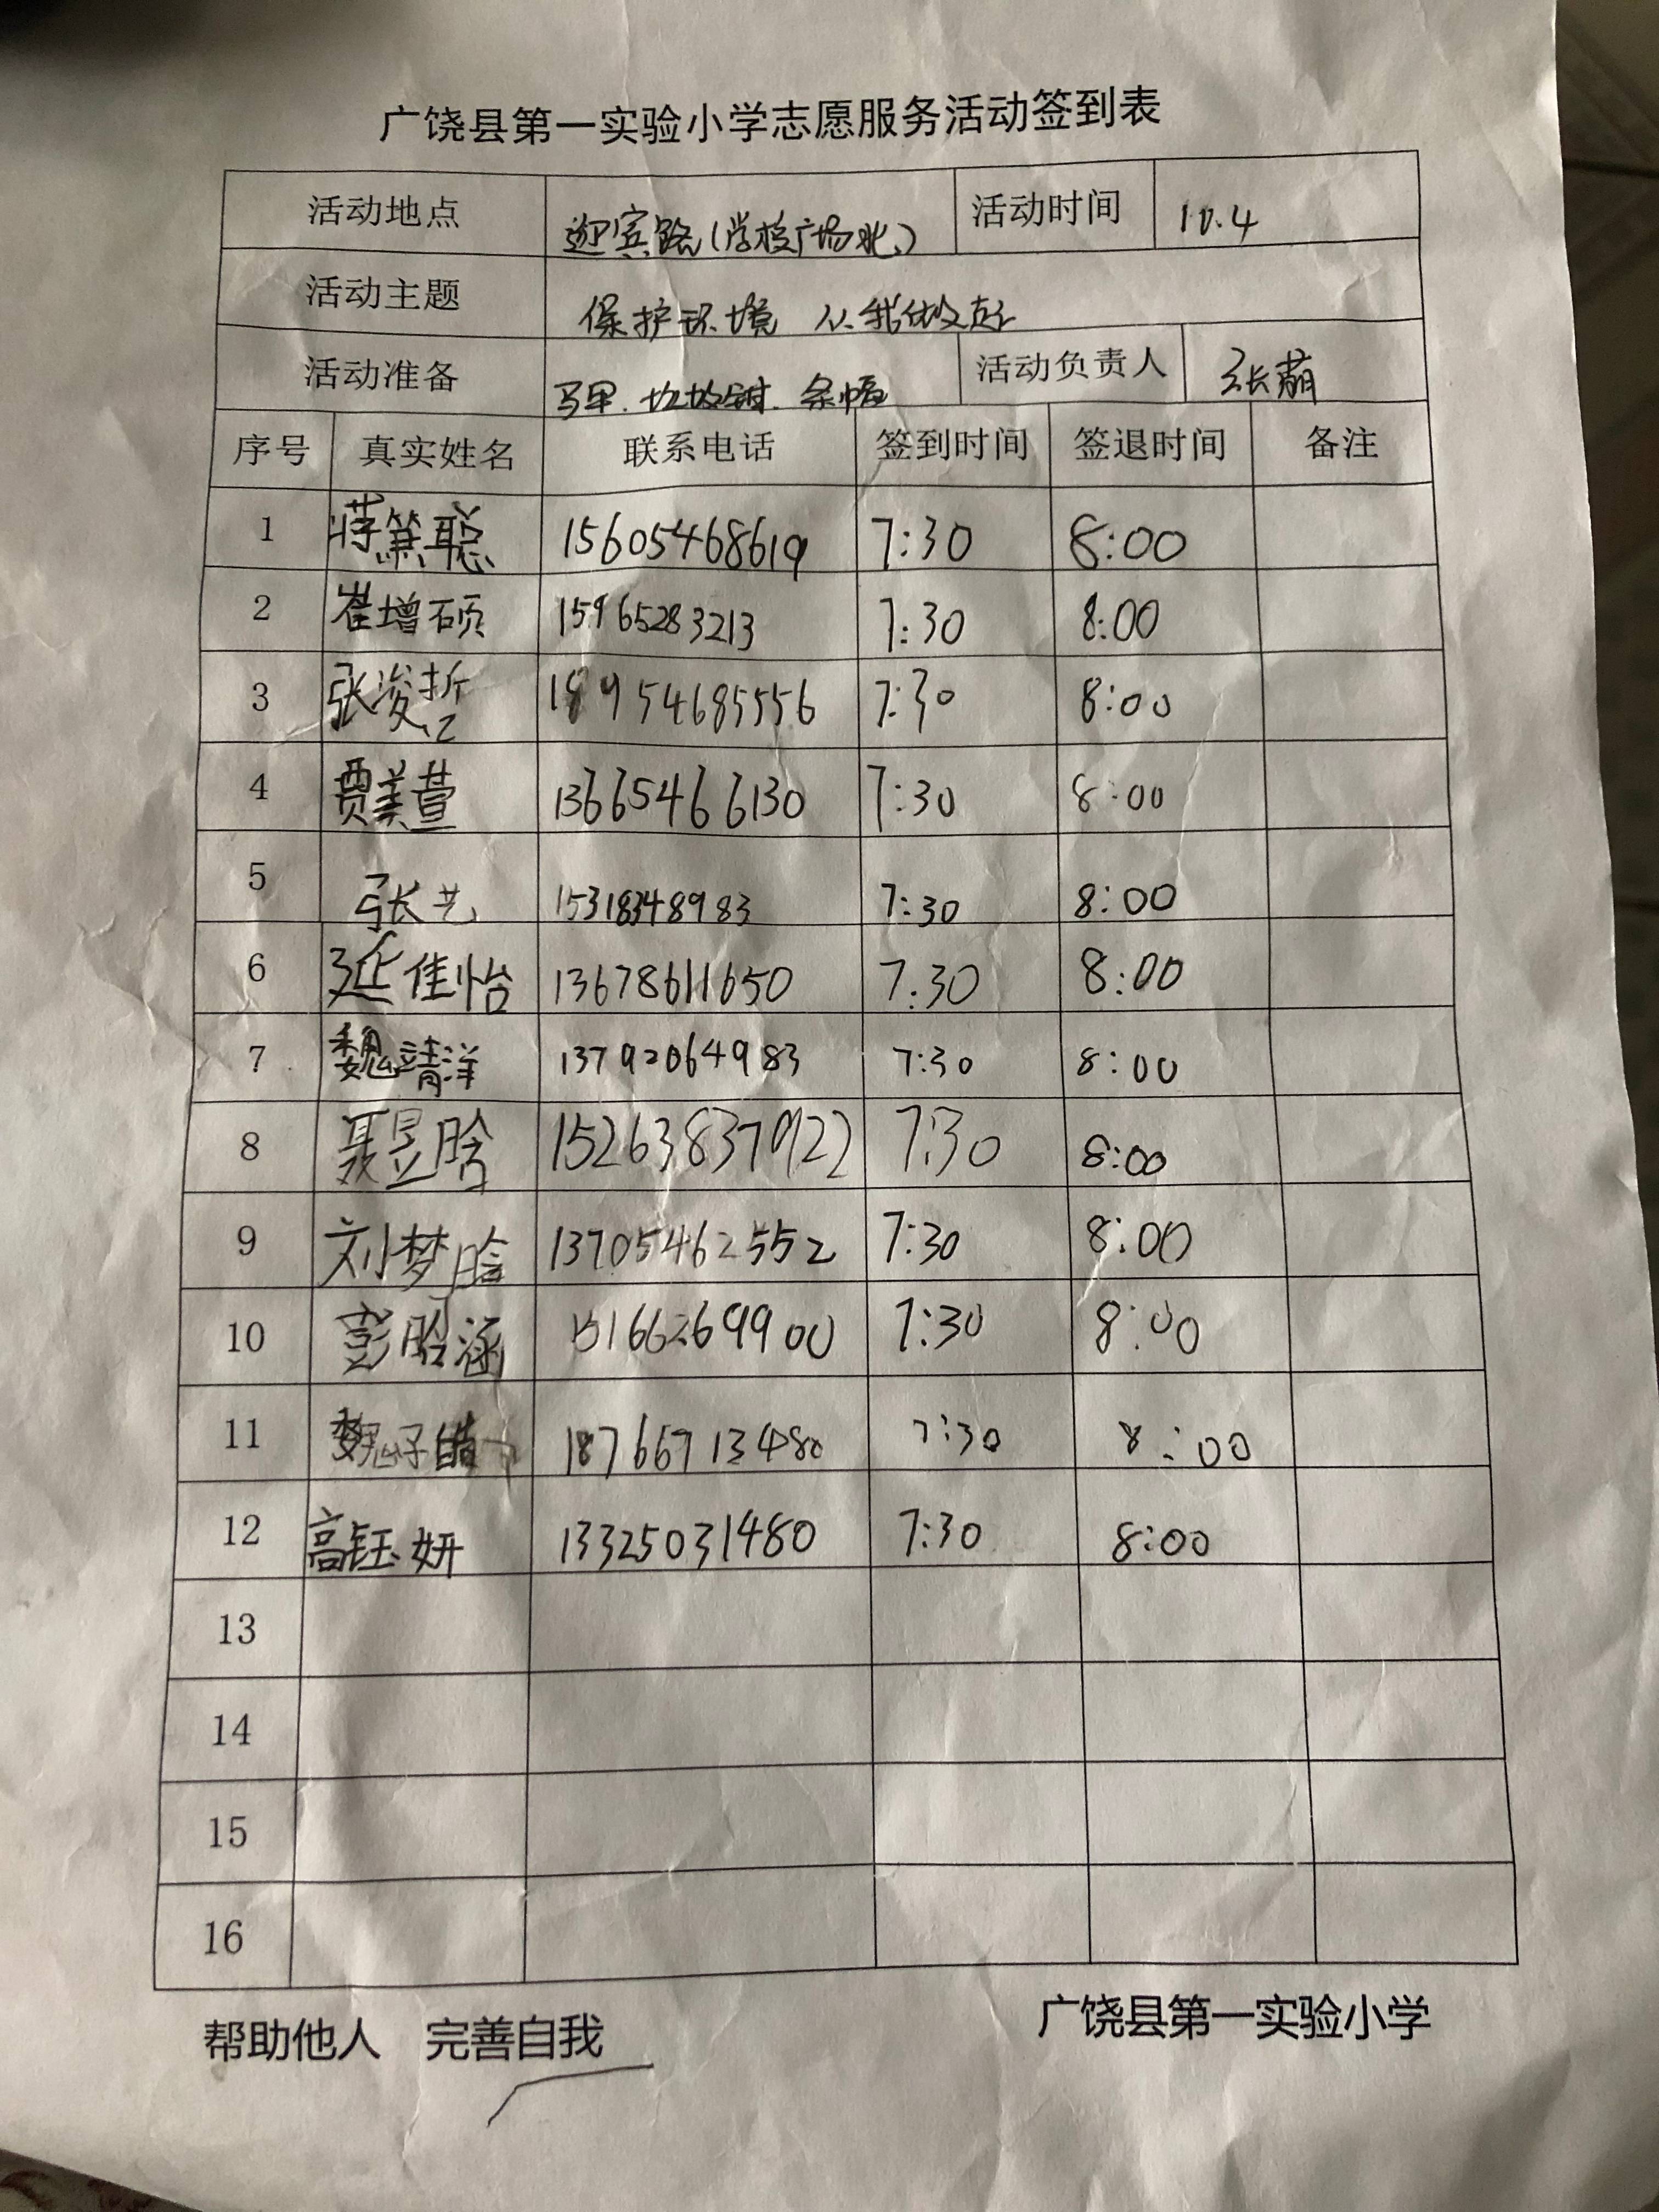 广饶县第一实验小学志愿服务活动签到表
活动地点 迎宾路(学校广场北) 活动时间 10.4
活动主题 保护环境 从我做起
活动准备 马甲、垃圾钳、条幅 活动负责人 张萌
序号 真实姓名 联系电话 签到时间 签退时间 备注
1 蒋篤聪 15605468619 7:30 8:00
2 崔增硕 15965283213 7:30 8:00
3 张浚哲 18954685556 7:30 8:00
4 贾美萱 13665466130 7:30 8:00
5 张艺 15318348983 7:30 8:00
6 延佳怡 13678611650 7:30 8:00
7 魏靖洋 13792064983 7:30 8:00
8 聂昱晗 15263837922 7:30 8:00
9 刘梦晗 13705462552 7:30 8:00
10 彭晗涵 15166269900 7:30 8:00
11 魏子皓 18766713480 7:30 8:00
12 高钰妍 13325031480 7:30 8:00
13
14
15
16
帮助他人 完善自我 广饶县第一实验小学